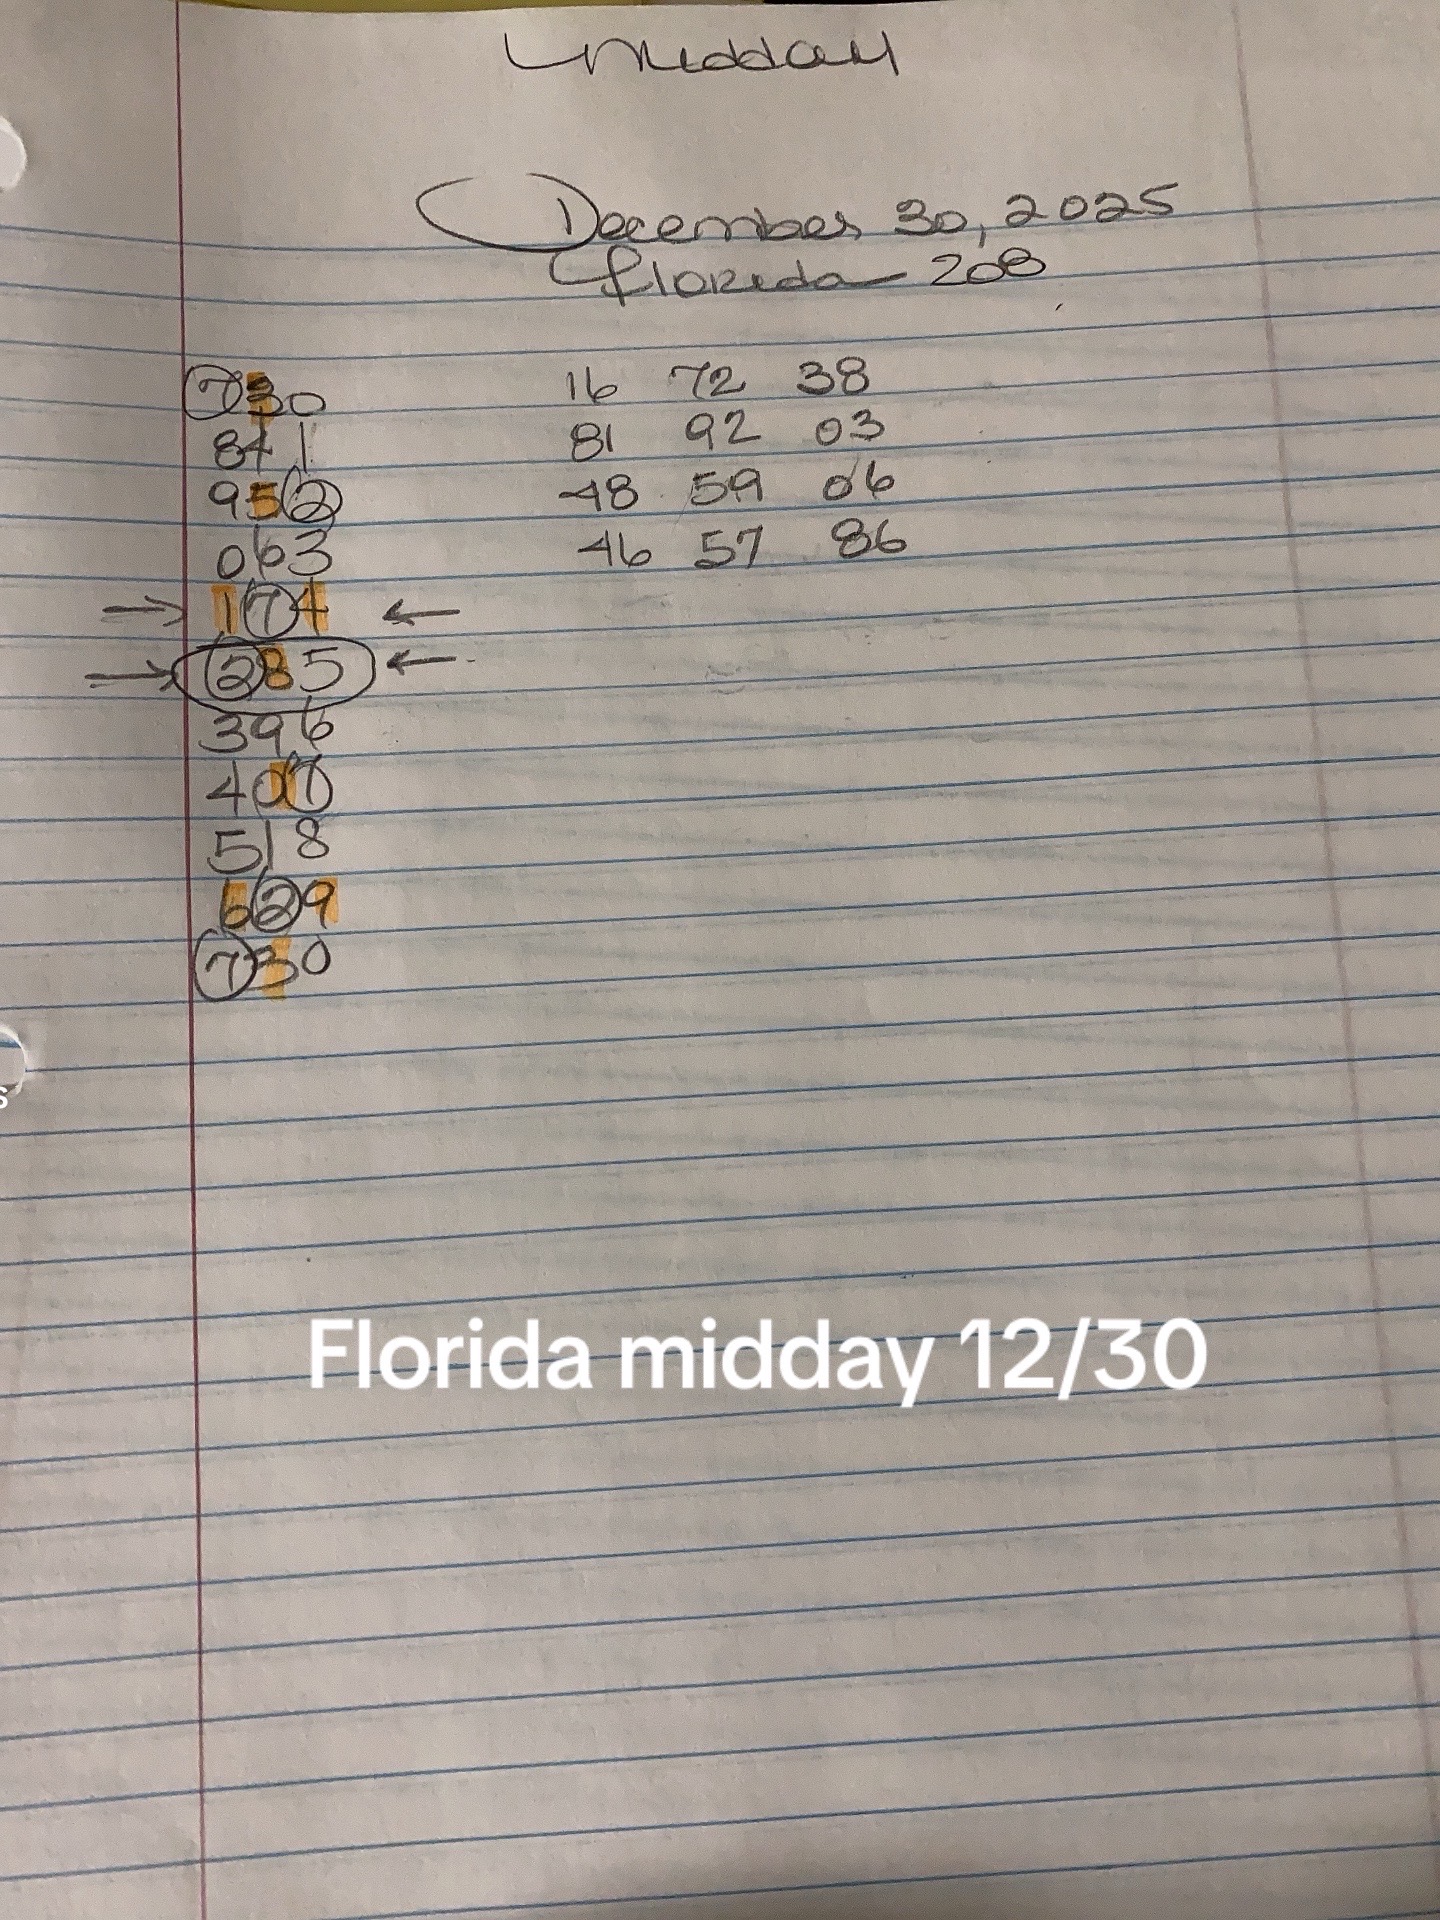 Midday
December 30, 2025
Florida 208
730 16 72 38
841 81 92 03
952 48 59 06
063 46 57 86
→ 174 ←
→ 285 ←
396
407
518
629
730
s
Florida midday 12/30